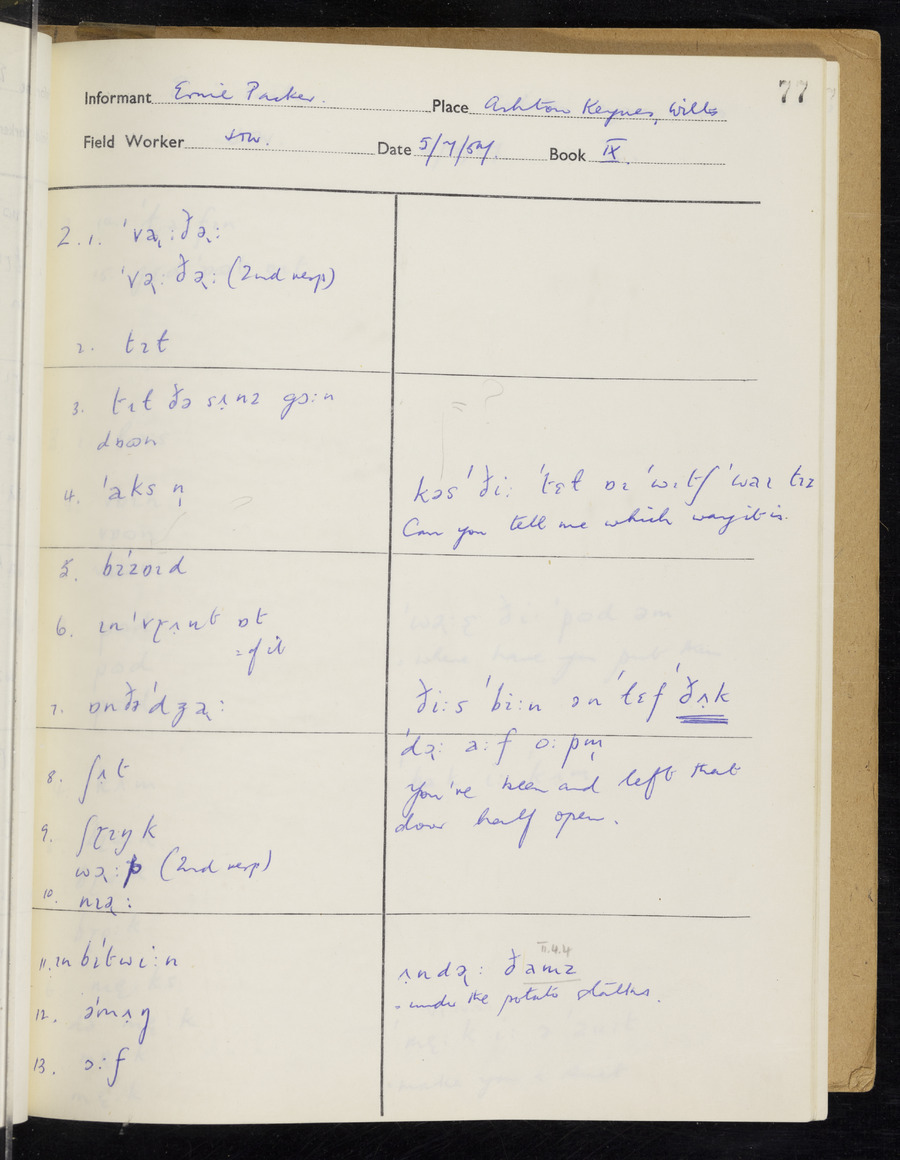 77
Informant Ernie Packer. Place Ashton Keynes, Wilts
Field Worker Date 5/7/54. Book IX
2.1. ˈvəɽːðəɽː
ˈvəɽːðəɽː (2nd resp)
2. tɪt
3. tɪt ðə sʌnz gɔːn
4. ˈaks n̩
kəsˈ ðiː ˈtɛt ɒɪ ˈwɪtʃ ˈwaɪ tɪz
Can you tell me which way it is.
5. bɪˈzɒɪd
6. ɪnˈvɽʌnt ɒt
= of it
7. ɒnðəˈdʒəɽː
ðiːs ˈbiːn ən ˈlɛf ˈðʌk
ˈdəɽː aːf oːpm̩
You've been and left that
door half open.
8. ʃʌt
9. ʃɽɪŋk
wəɽːp (2nd resp)
10. nɪəɽː
11. ɪn bɪˈtwiːn
II.4.4
ʌndəɽː ðamz
- under the potato stalks.
12. əˈmʌŋ
13. ɔːf